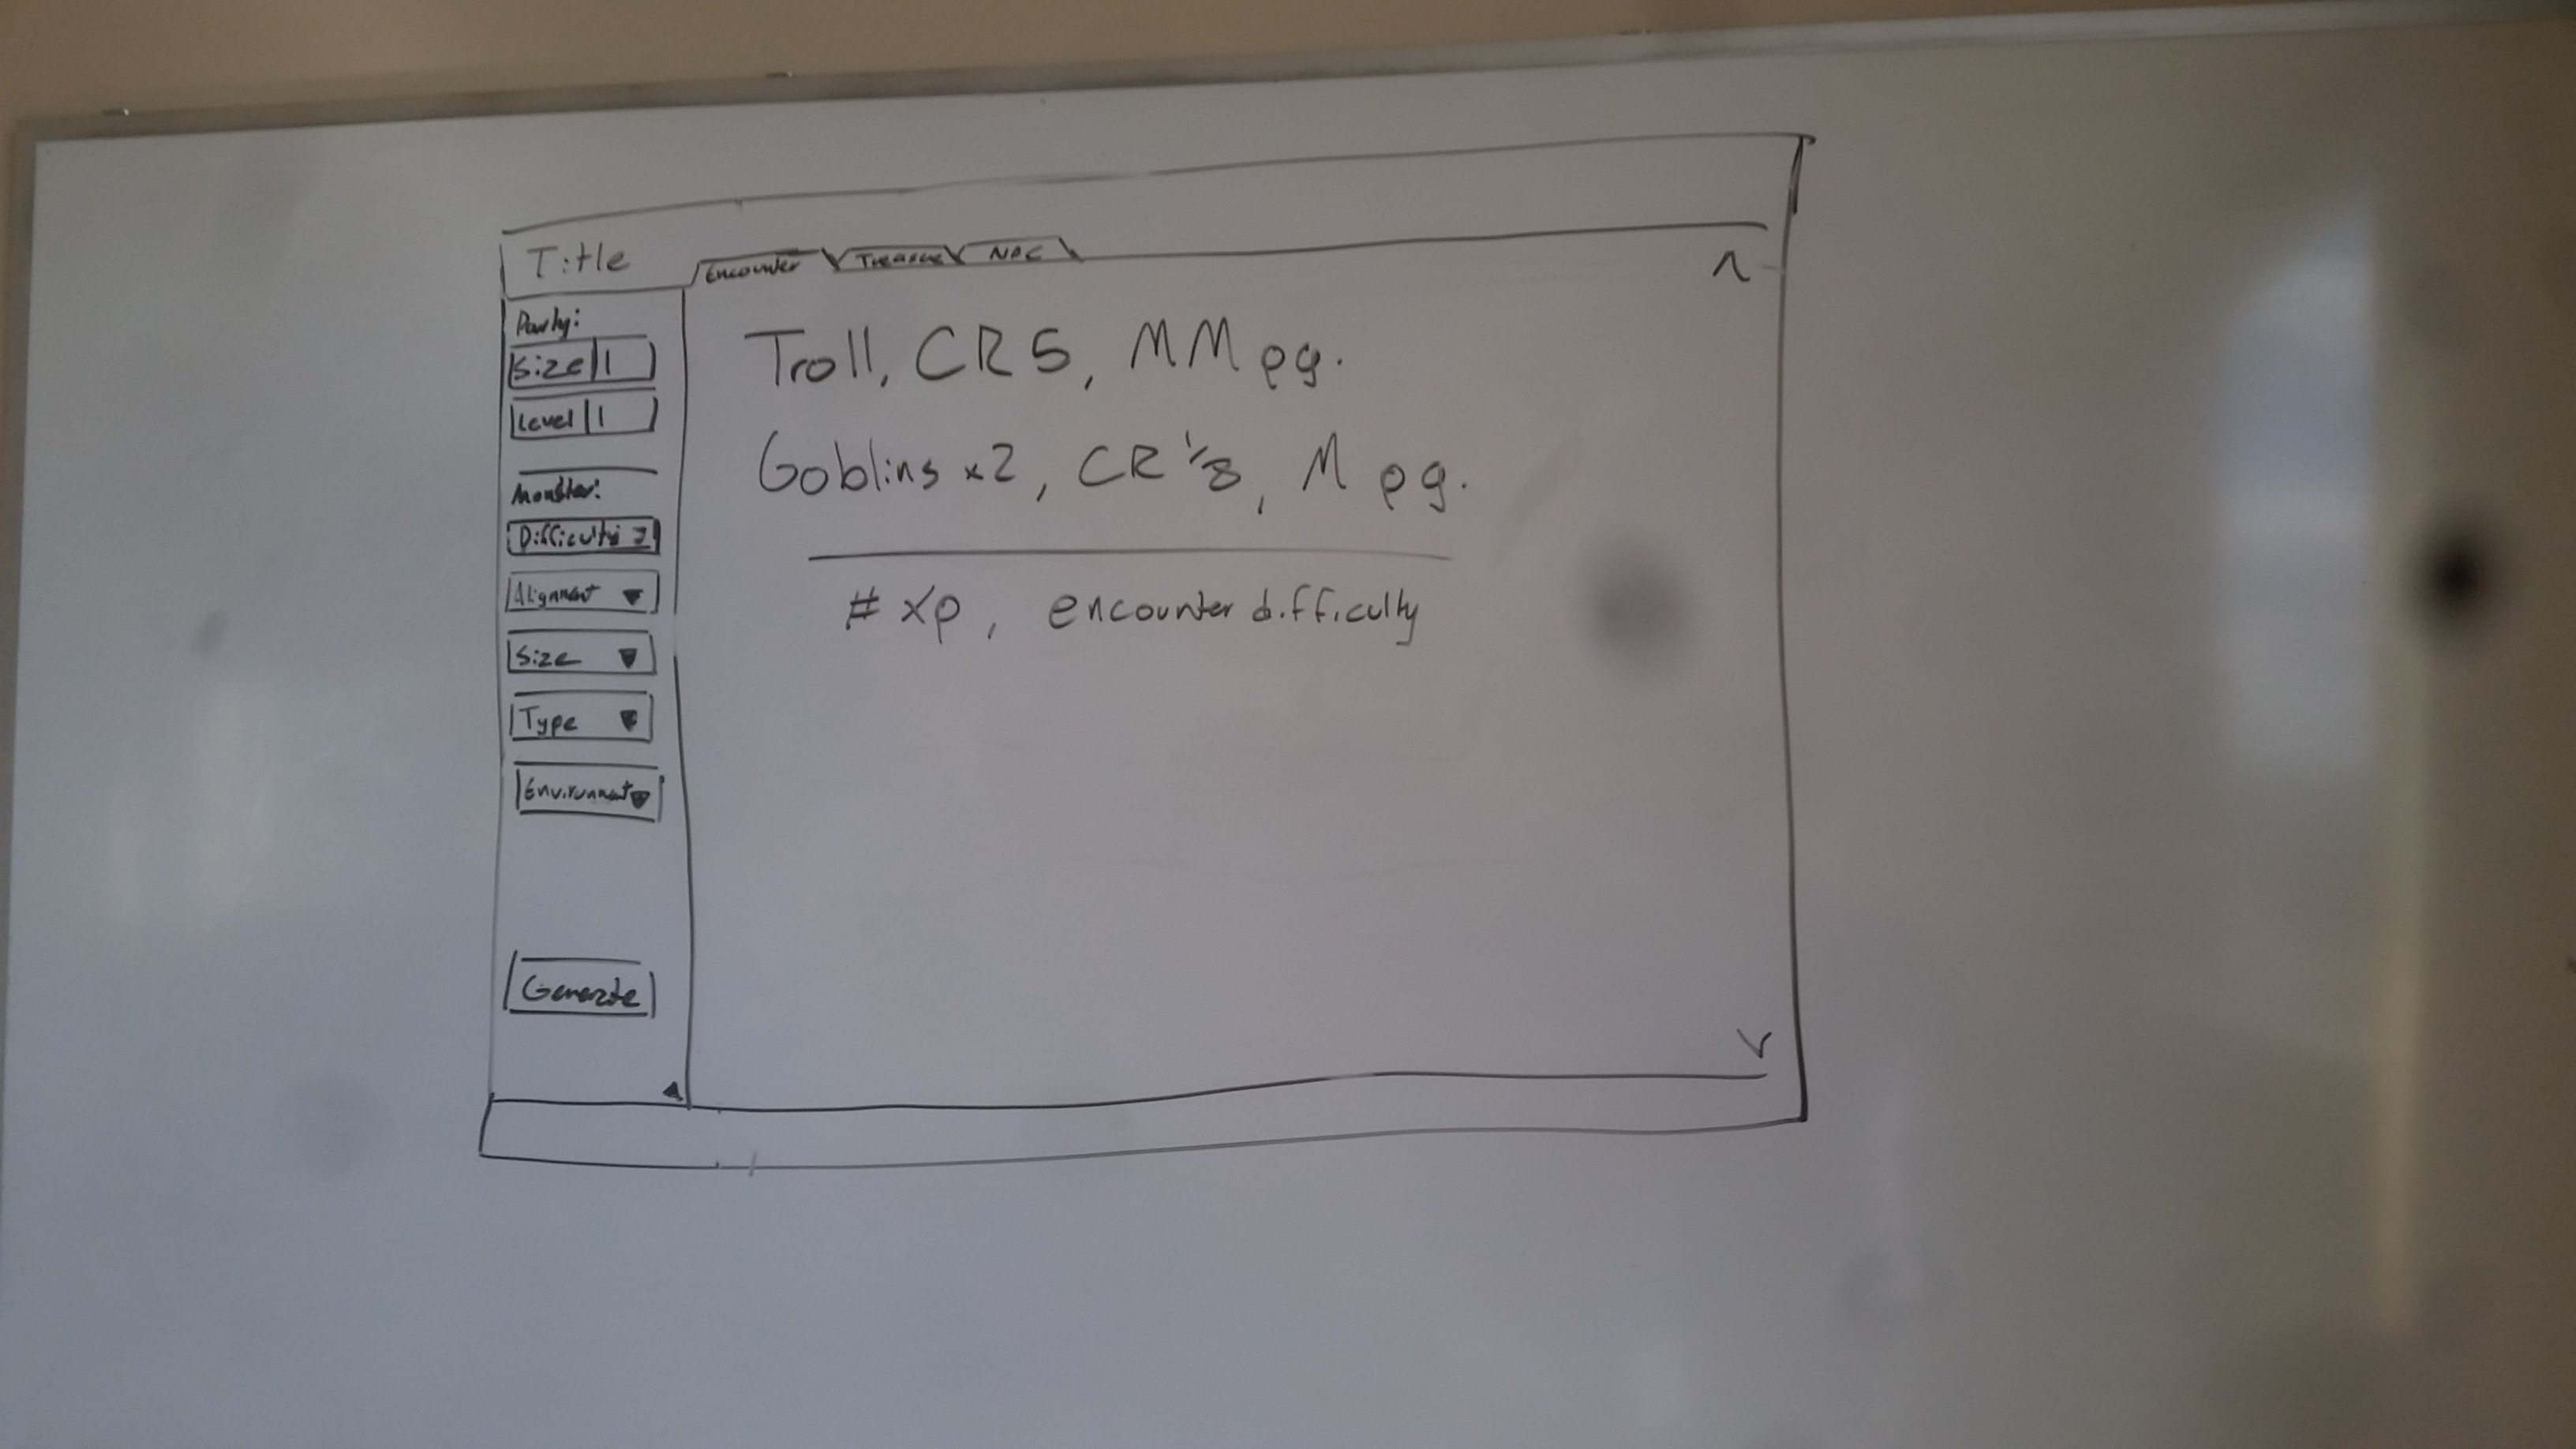 Title
Encounter Treasure NPC
Party:
Size 1
Level 1
Monster:
Difficulty
Alignment
Size
Type
Environment
Generate
Troll, CR 5, MM pg.
Goblins x2, CR 1/8, M pg.
# xp, encounter difficulty